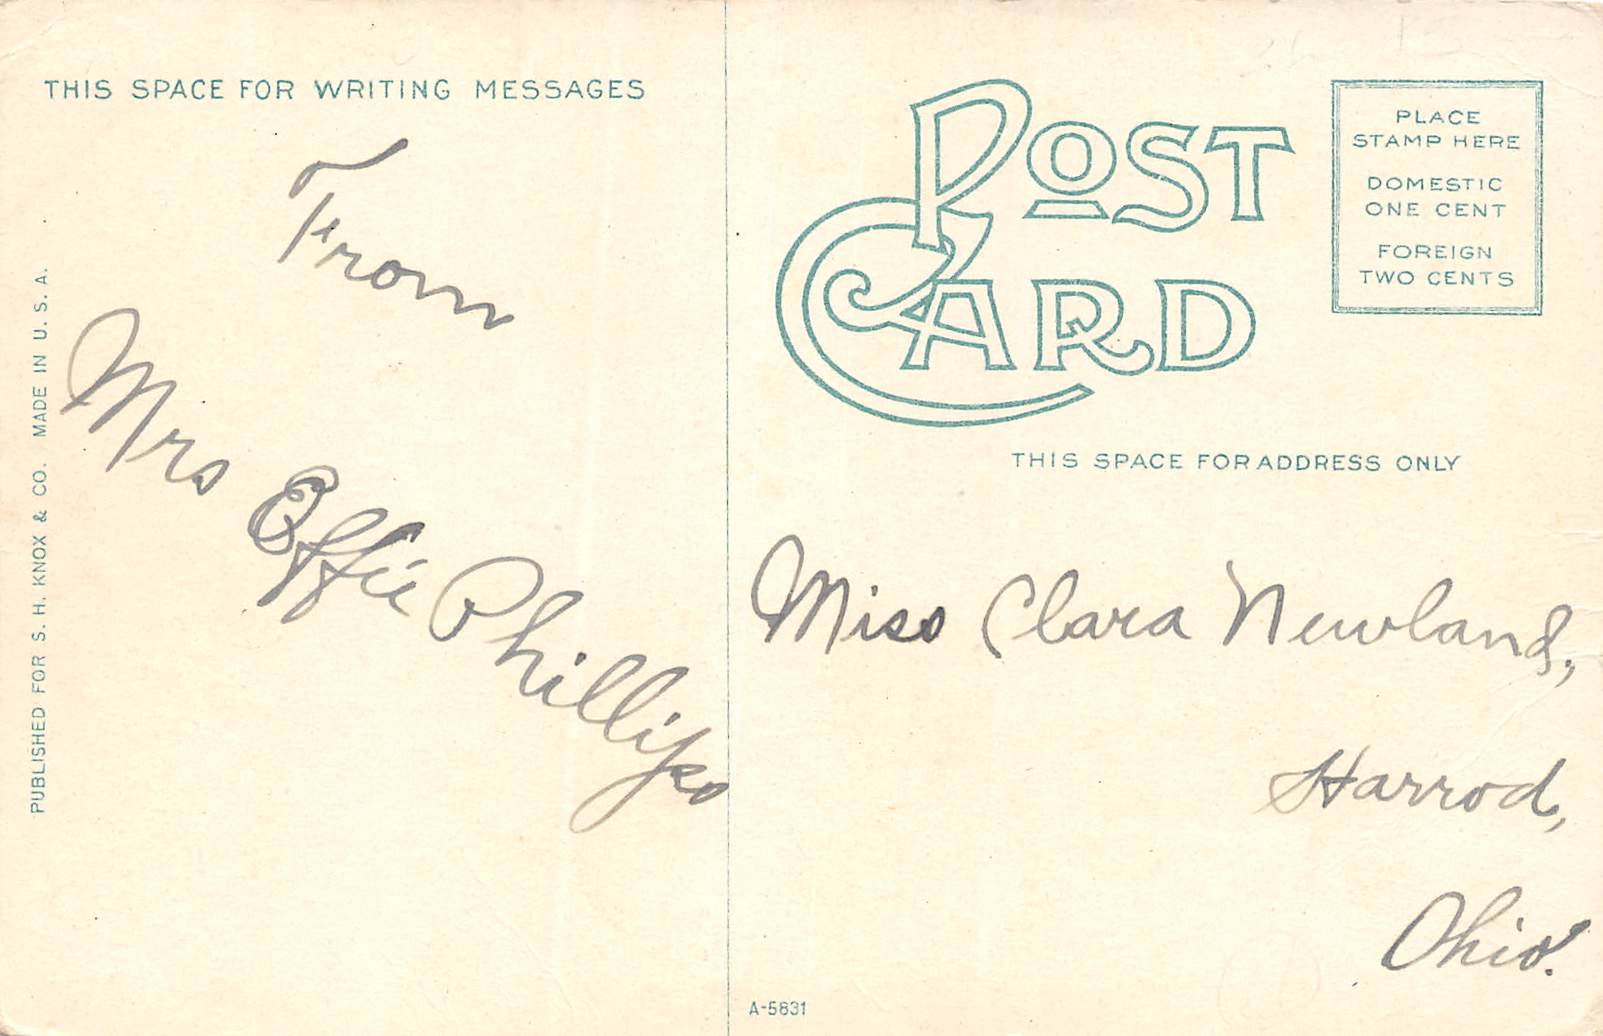 THIS SPACE FOR WRITING MESSAGES
From
Mrs Effie Phillips
PUBLISHED FOR S. H. KNOX & CO. MADE IN U. S. A.
POST
CARD
PLACE
STAMP HERE
DOMESTIC
ONE CENT
FOREIGN
TWO CENTS
THIS SPACE FOR ADDRESS ONLY
Miss Clara Newland,
Harrod,
Ohio.
A-5831